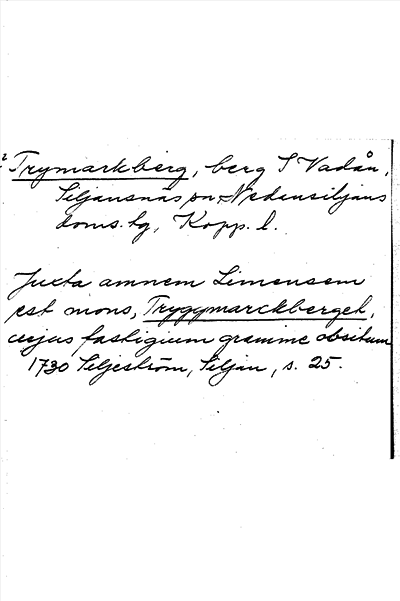 Trymarkberg, berg S Vadån,
Siljansnäs sn, Nedansiljans
doms. hg, Kopp. l.
Juxta amnem Limensem
est mons, Trygymarckberget,
cujus fastigium gramine obsitum
1730 Siljeström, Siljan, s. 25.